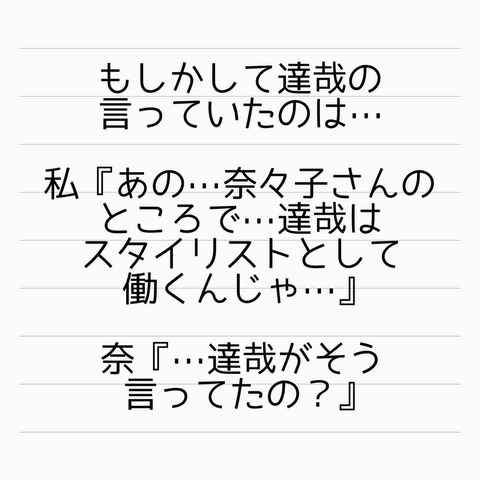 もしかして達哉の
言っていたのは…
私『あの…奈々子さんの
ところで…達哉は
スタイリストとして
働くんじゃ…』
奈『…達哉がそう
言ってたの？』